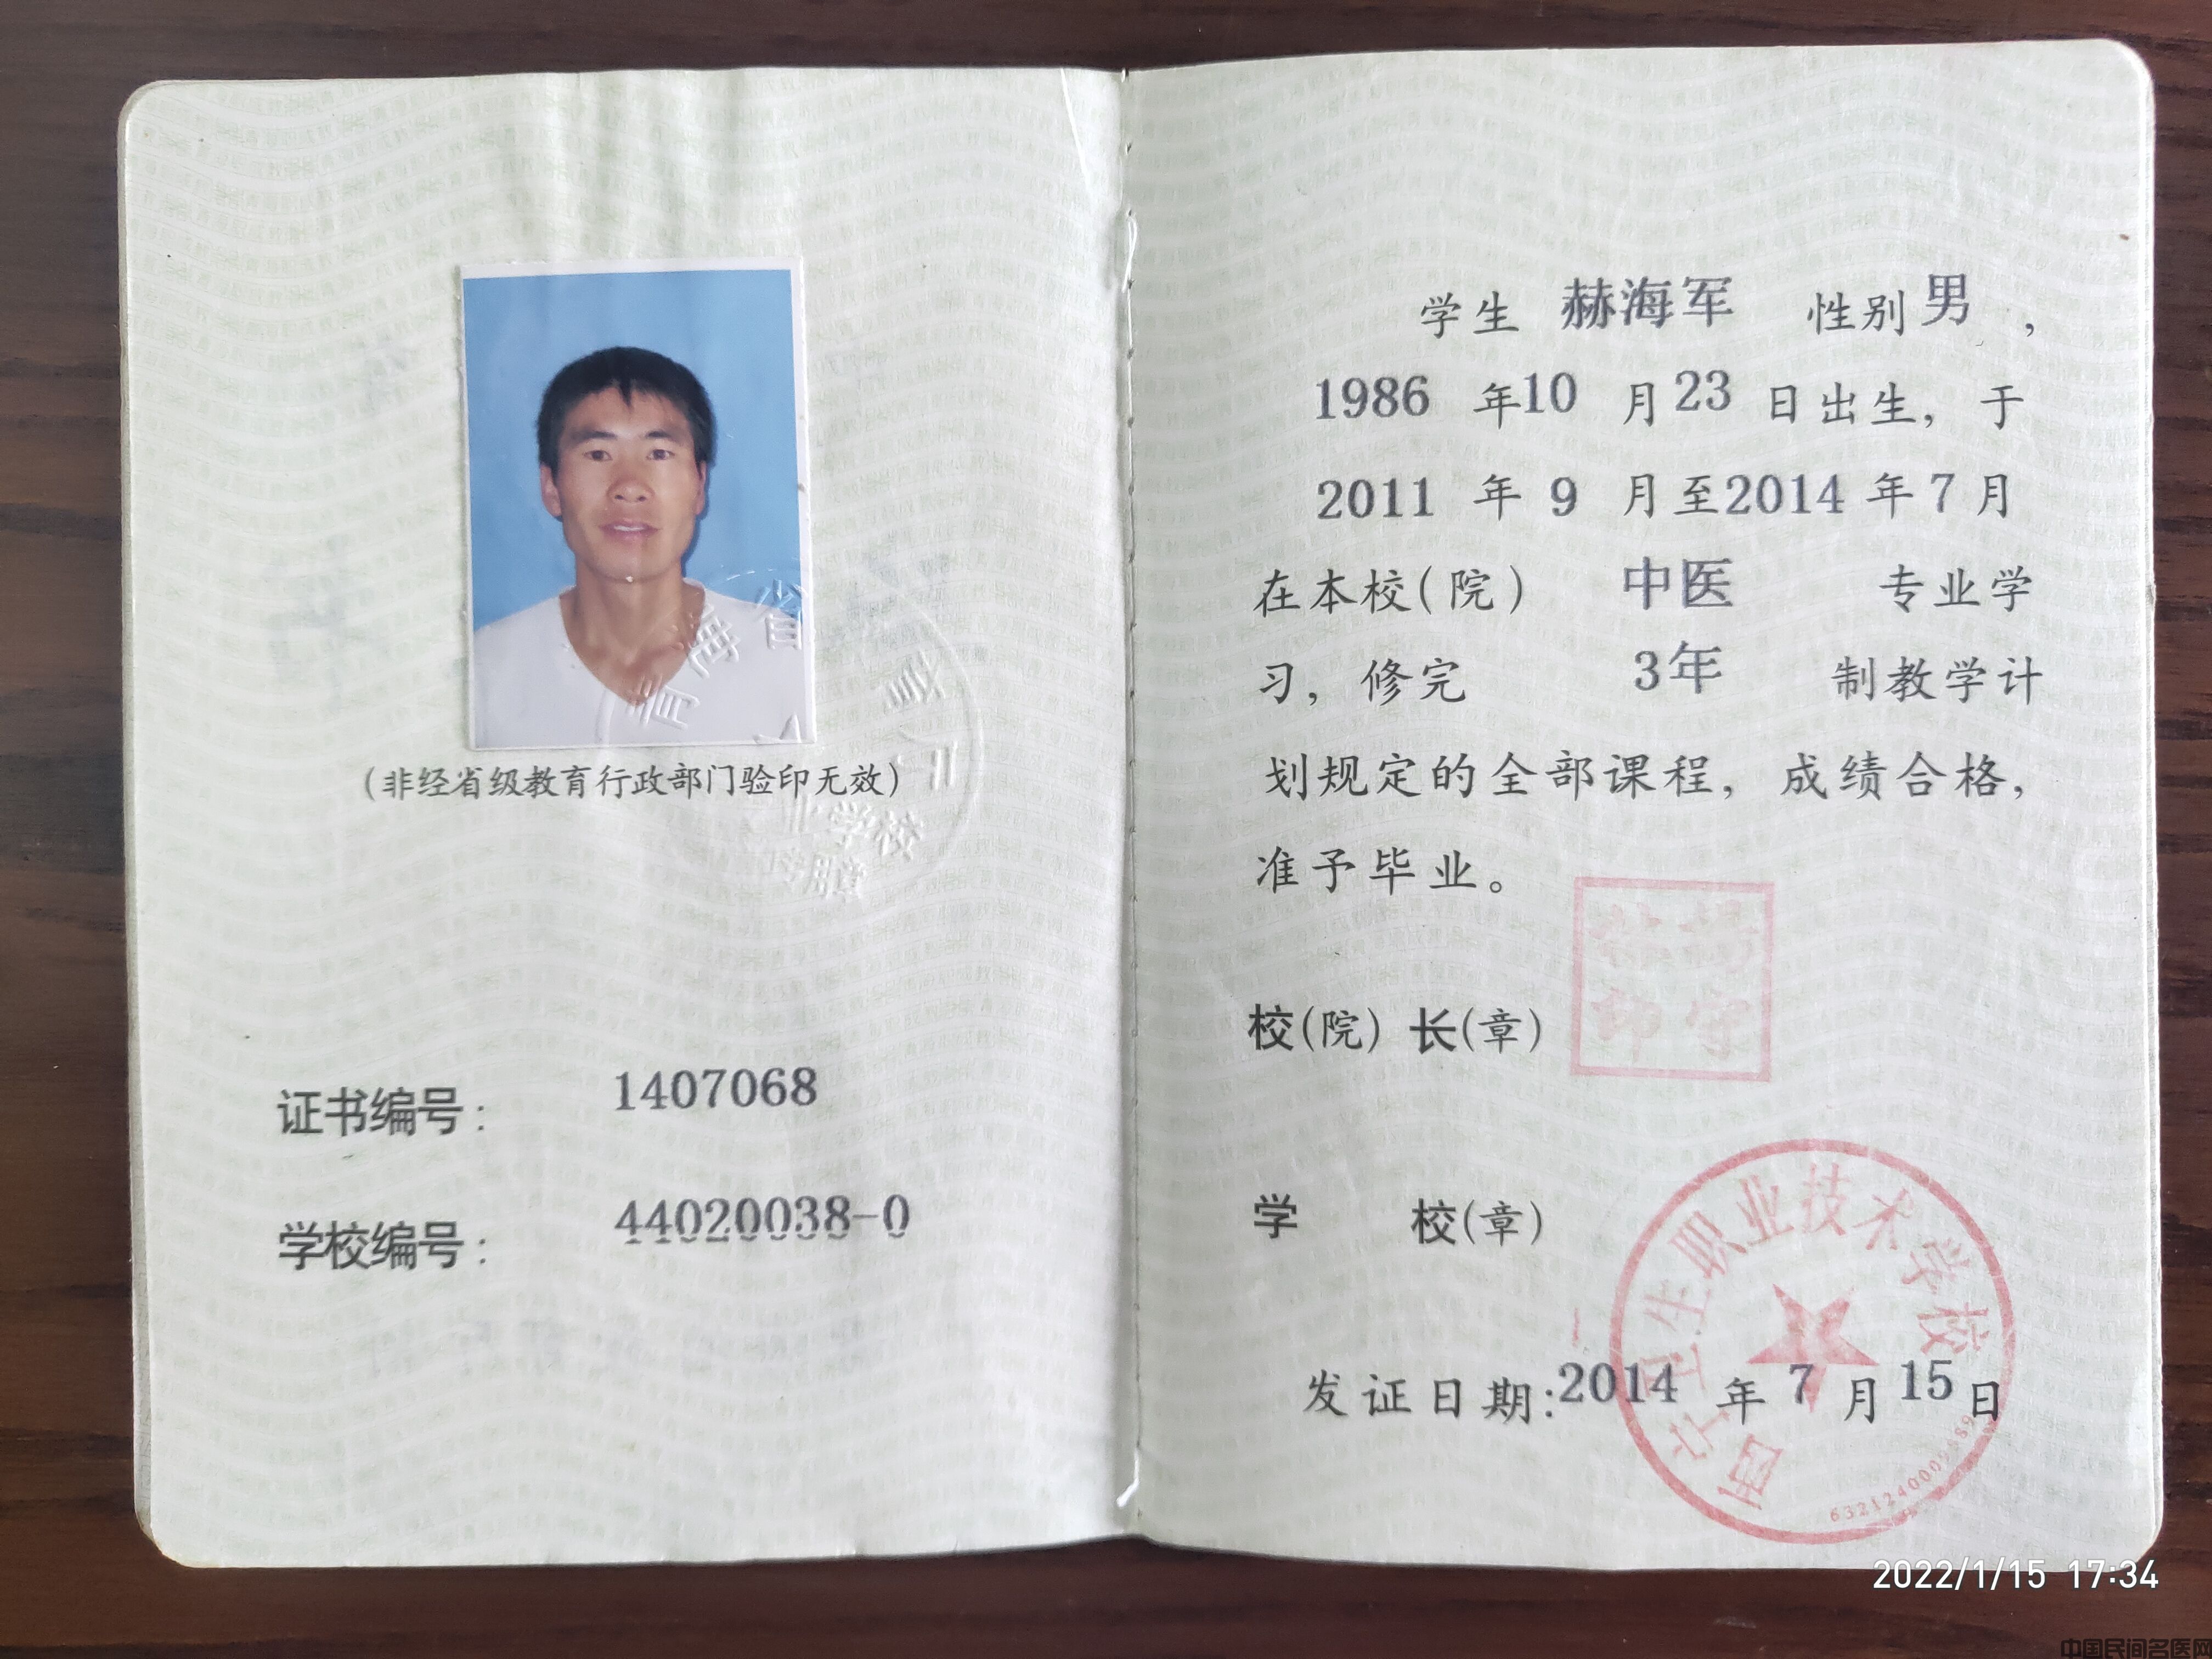 青海省
教育厅
业学校
专用章
(非经省级教育行政部门验印无效)
证书编号: 1407068
学校编号: 44020038-0
学生 赫海军 性别 男 ,
1986 年 10 月 23 日出生, 于
2011 年 9 月至 2014 年 7 月
在本校(院) 中医 专业学
习, 修完 3年 制教学计
划规定的全部课程, 成绩合格,
准予毕业。
校(院) 长(章)
学 校(章)
西宁卫生职业技术学校
发证日期:2014 年 7 月 15 日
2022/1/15 17:34
中国民间名医网